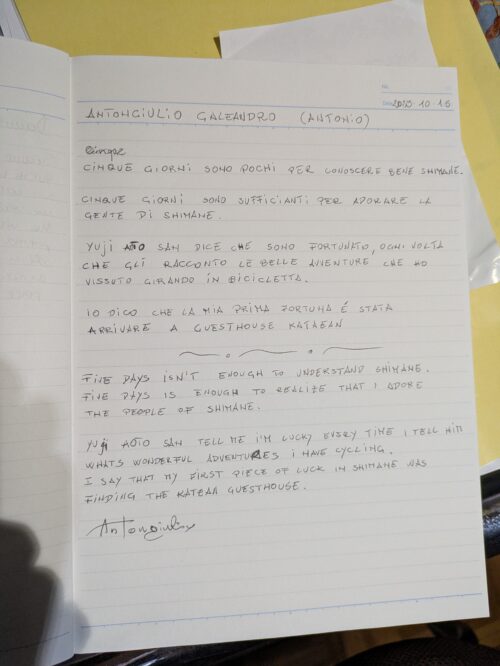 2023・10・16
ANTONGIULIO GALEANDRO (ANTONIO)
CINQUE GIORNI SONO POCHI PER CONOSCERE BENE SHIMANE.
CINQUE GIORNI SONO SUFFICIANTI PER ADORARE LA
GENTE DI SHIMANE.
YUJI AOTO SAN DICE CHE SONO FORTUNATO, OGNI VOLTA
CHE GLI RACCONTO LE BELLE AVVENTURE CHE HO
VISSUTO GIRANDO IN BICICLETTA.
IO DICO CHE LA MIA PRIMA FORTUNA É STATA
ARRIVARE A GUESTHOUSE KATAEAN
FIVE DAYS ISN'T ENOUGH TO UNDERSTAND SHIMANE.
FIVE DAYS IS ENOUGH TO REALIZE THAT I ADORE
THE PEOPLE OF SHIMANE.
YUJI AOTO SAN TELL ME I'M LUCKY EVERY TIME I TELL HIM
WHATS WONDERFUL ADVENTURES I HAVE CYCLING.
I SAY THAT MY FIRST PIECE OF LUCK IN SHIMANE WAS
FINDING THE KATEAN GUESTHOUSE.